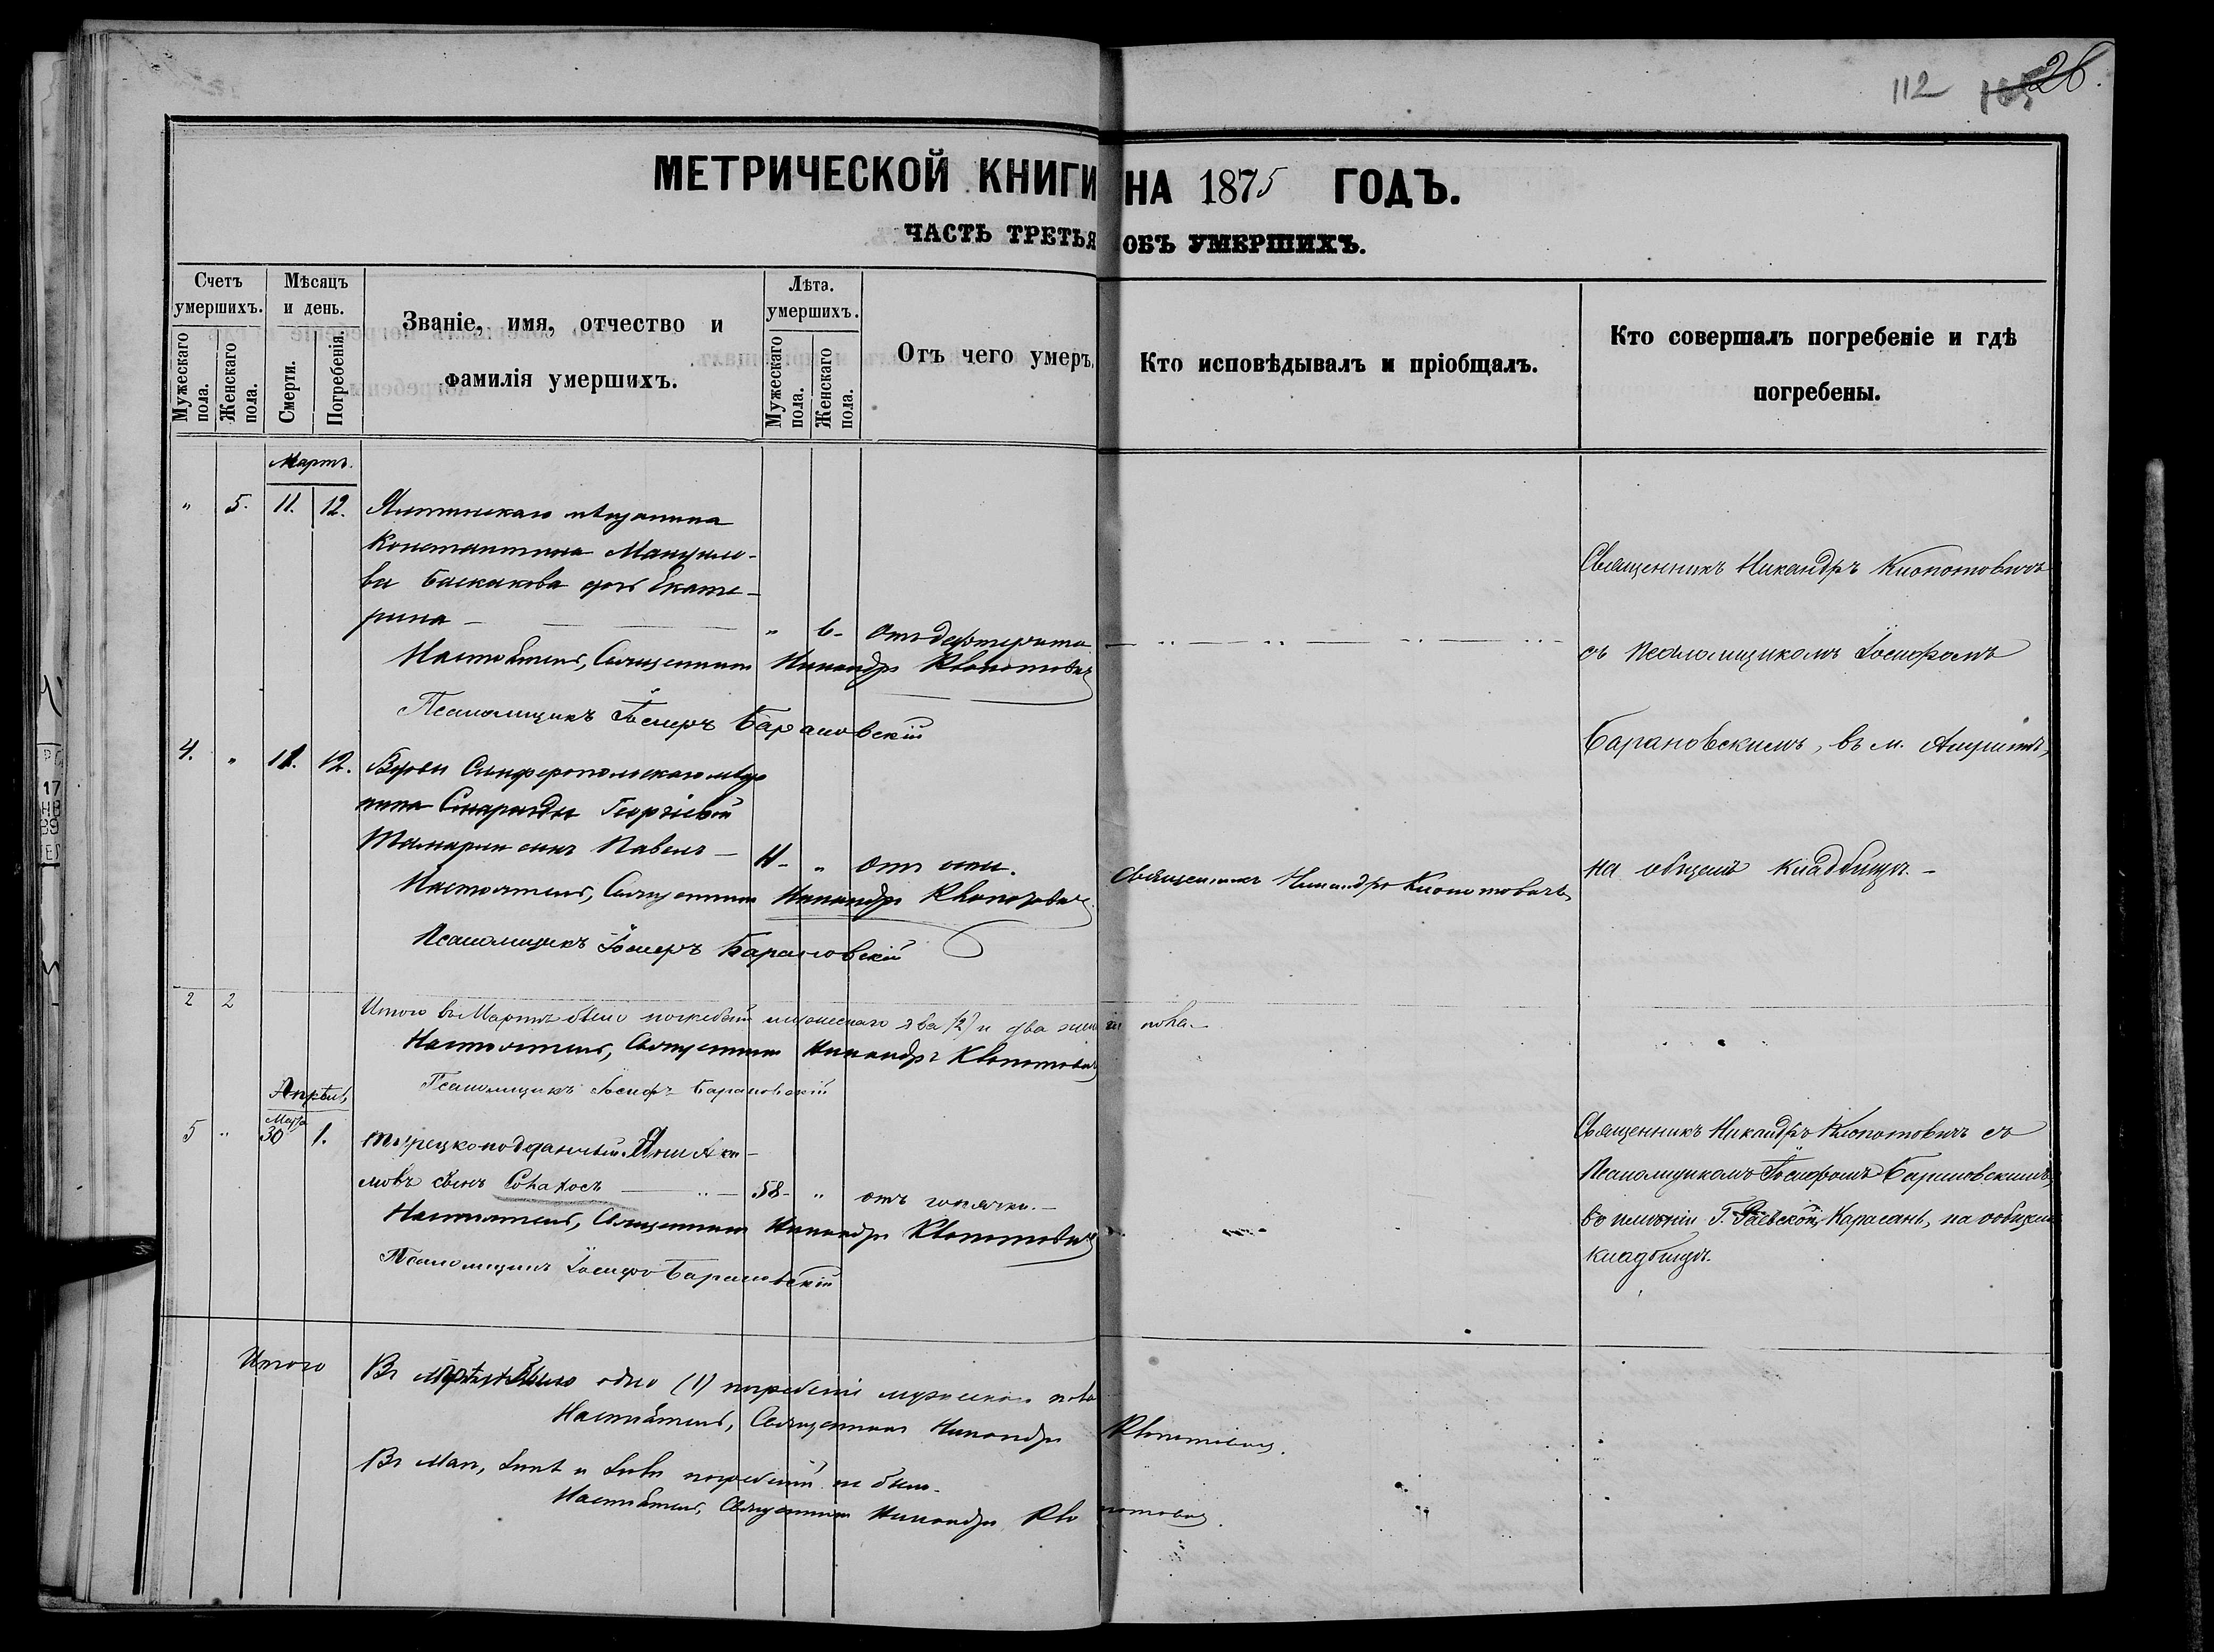 112 26.
МЕТРИЧЕСКОЙ КНИГИ НА 1875 ГОДЪ.
ЧАСТЬ ТРЕТЬЯ ОБЪ УМЕРШИХЪ.
Счетъ умершихъ.
Мужескаго пола.
Женскаго пола.
Мѣсяцъ и день.
Смерти.
Погребенія.
Званіе, имя, отчество и
фамилія умершихъ.
Лѣта. умершихъ.
Мужескаго пола.
Женскаго пола.
Отъ чего умеръ.
Кто исповѣдывалъ и пріобщалъ.
Кто совершалъ погребеніе и гдѣ
погребены.
Мартъ.
" 5. 11. 12. Ялтинскаго мѣщанина
Константина
дочь Екате-
рина — " 6- Отъ дифтерита
Настоятель, Священникъ Никандръ Клопотовичъ
Псаломщикъ Іосифъ Барановскій
Священникъ Никандръ Клопотовичъ
съ Псаломщикомъ Іосифомъ
Барановскимъ, въ м. Алуштѣ,
на общемъ кладбищѣ.-
4. " 11. 12. Вдовы Симферопольскаго мѣща
нина Георгіевой
сынъ Павелъ — " Отъ оспы.
Священникъ Никандръ Клопотовичъ
Настоятель, Священникъ Никандръ Клопотовичъ
Псаломщикъ Іосифъ Барановскій
2 2 Итого въ Мартѣ было погребеній мужескаго два (2) и два пола.
Настоятель, Священникъ Никандръ Клопотовичъ
Псаломщикъ Іосифъ Барановскій
Апрѣль
Марта
5 " 30 1. Турецкоподданный
сынъ — 58- " отъ горячки.—
Настоятель, Священникъ Никандръ Клопотовичъ
Псаломщикъ Іосифъ Барановскій
Священникъ Никандръ Клопотовичъ съ
Псаломщикомъ Іосифомъ Барановскимъ,
въ имѣніи Г. Раевской, Карасанъ, на общемъ
кладбищѣ.
Итого Въ было одно (1) погребеніе мужескаго пола
Настоятель, Священникъ Никандръ Клопотовичъ.
Въ Маѣ, Іюнѣ и Іюлѣ погребеній не было.
Настоятель, Священникъ Никандръ Клопотовичъ.